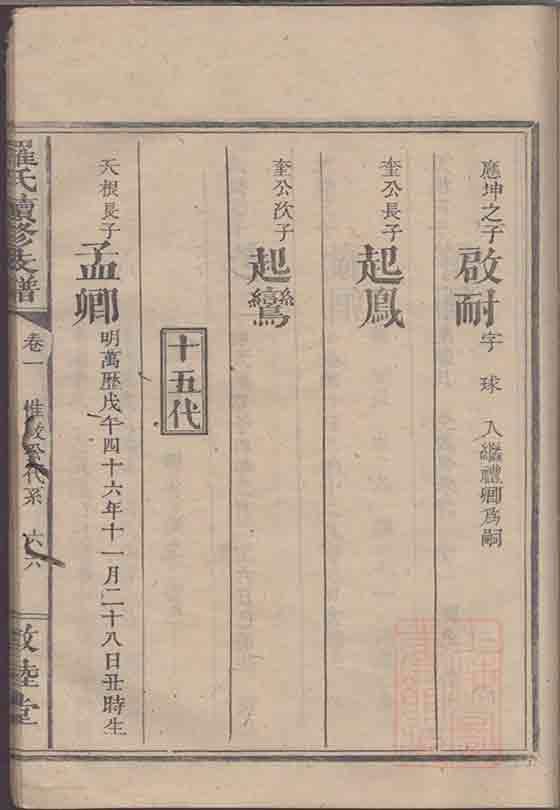 應坤之子啟耐字球入繼禮卿為嗣
奎公長子起鳳
奎公次子起鸞
十五代
天根長子孟卿明萬歷戊午四十六年十一月二十八日丑時生
羅氏續修支譜
卷一 惟敬公代系 六六
敦睦堂